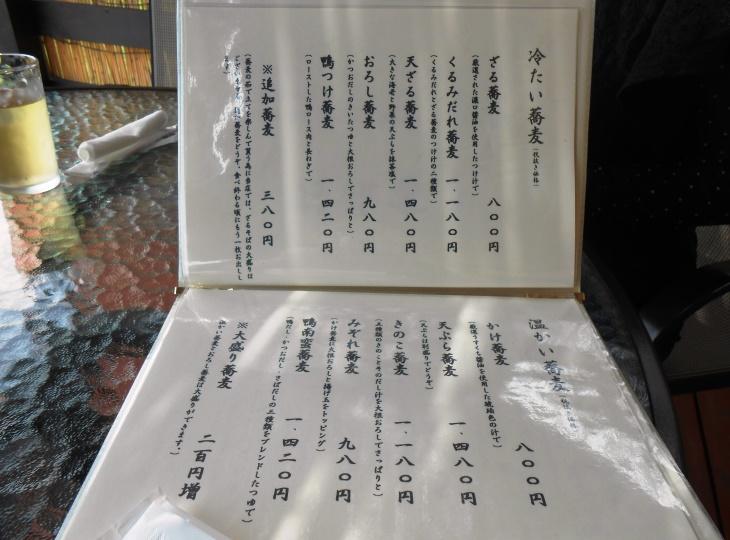 冷たい蕎麦（税抜き価格）
ざる蕎麦　八〇〇円
（厳選された濃口醤油を使用したつけ汁で）
くるみだれ蕎麦　一、一八〇円
（くるみだれとざる蕎麦のつけ汁の二種類で）
天ざる蕎麦　一、四八〇円
（大きな海老と野菜の天ぷらを抹茶塩で）
おろし蕎麦　九八〇円
（かつおだしのきいたつゆと大根おろしでさっぱりと）
鴨つけ蕎麦　一、四二〇円
（ローストした鴨ロース肉と長ねぎで）
※追加蕎麦　三八〇円
（蕎麦の茹で立てを楽しんで貰う為に当店では、ざるそばの大盛りは
蕎麦をどうぞ。食べ終わる頃にもう一枚お出しし
ます）
温かい蕎麦
かけ蕎麦　八〇〇円
（厳選うすくち醤油を使用した琥珀色の汁で）
天ぷら蕎麦　一、四八〇円
（天ぷらは別盛りでどうぞ）
きのこ蕎麦　一、一八〇円
（三種類のきのことそのだし汁を大根おろしでさっぱりと）
みぞれ蕎麦　九八〇円
（かけ蕎麦に大根おろしと揚げ玉をトッピング）
鴨南蛮蕎麦　一、四二〇円
（鴨だし・かつおだし・さばだしの三種類をブレンドしたつゆで）
※大盛り蕎麦　二百円増
（温かい蕎麦とおろし蕎麦は大盛りができます。）